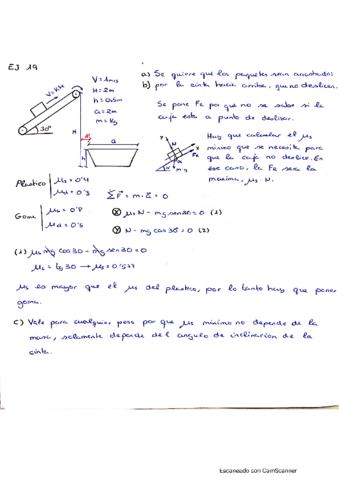 EJ 19
V = kte
V = 1m/s
H = 2m
h = 0'5m
a = 2m
m = kg
30°
H
a
h
a) Se quiere que los paquetes sean arrastrados
b) por la cinta hacia arriba, que no deslicen.
Se pone FR por que no se sabe si la
caja esta a punto de deslizar.
Y
N
X
FR
m·g
Hay que calcular el μs
minimo que se necesita para
que la caja no deslice. En
ese caso, la FR sera la
maxima, μs·N.
Plastico | μs = 0'4
μd = 0'3
Goma | μs = 0'8
μd = 0'5
ΣF = m·a = 0
Ⓧ μs N - mg sen30 = 0 (1)
Ⓨ N - mg cos 30 = 0 (2)
(1) μs mg cos30 - mg sen30 = 0
μs = tg 30 → μs = 0'577
μs es mayor que el μs del plastico, por lo tanto hay que poner
goma.
c) Vale para cualquier peso por que μs minimo no depende de la
masa, solamente depende del angulo de inclinacion de la
cinta.
Escaneado con CamScanner